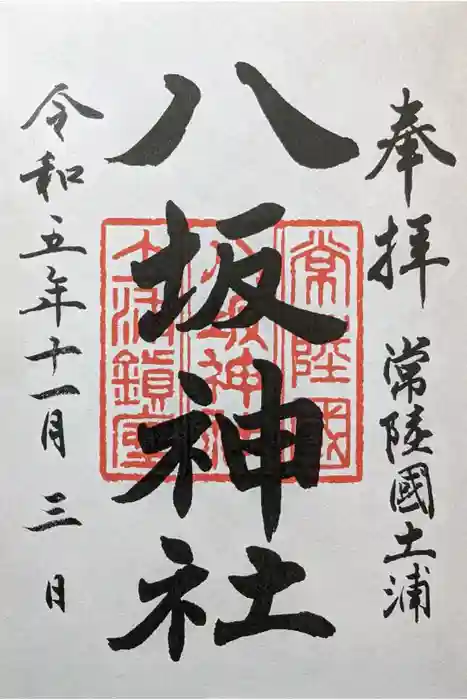 奉拝 常陸國土浦
八坂神社
常陸國
八坂神社
土浦鎮守
令和五年十一月三日